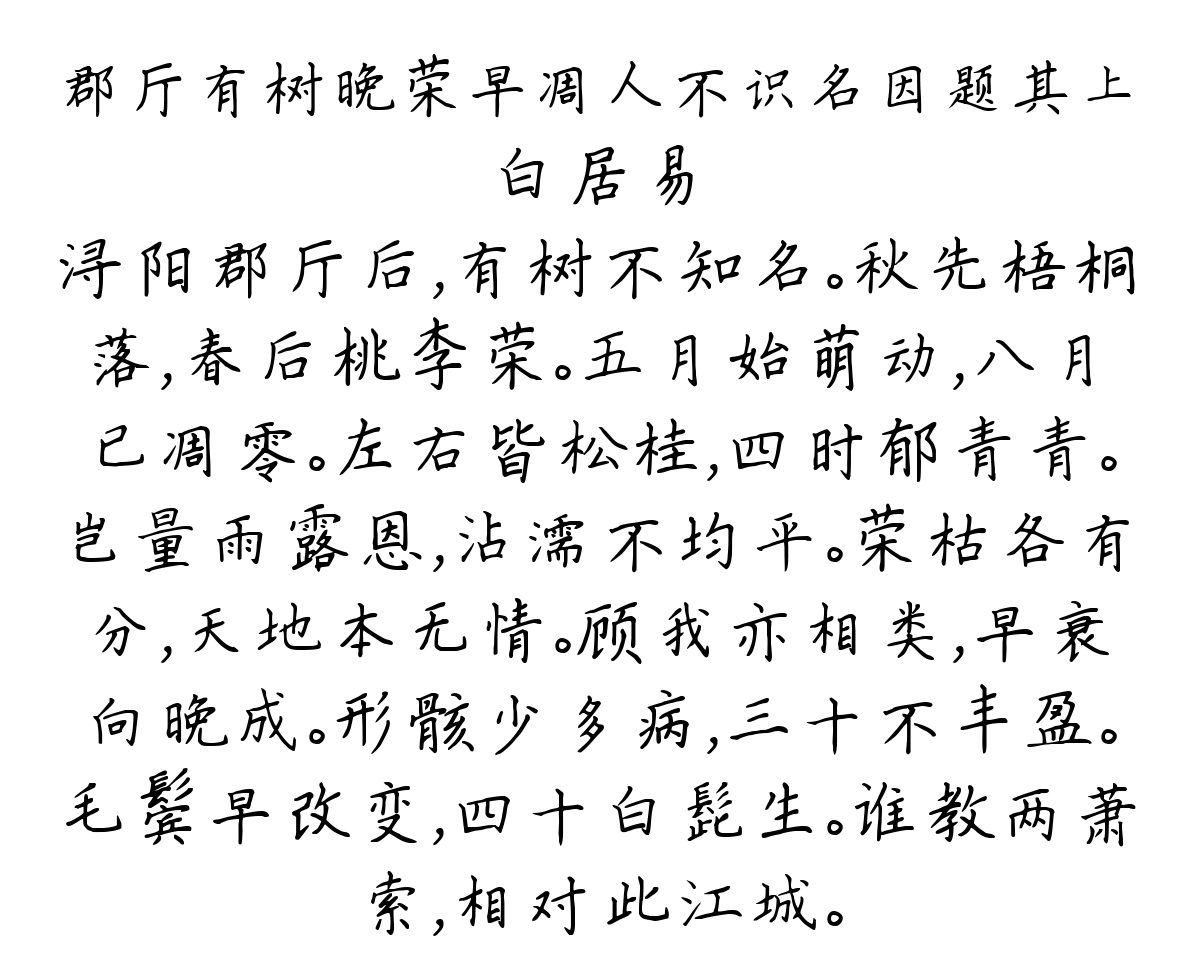 郡厅有树晚荣早凋人不识名因题其上
白居易
浔阳郡厅后,有树不知名。秋先梧桐
落,春后桃李荣。五月始萌动,八月
已凋零。左右皆松桂,四时郁青青。
岂量雨露恩,沾濡不均平。荣枯各有
分,天地本无情。顾我亦相类,早衰
向晚成。形骸少多病,三十不丰盈。
毛鬓早改变,四十白髭生。谁教两萧
索,相对此江城。